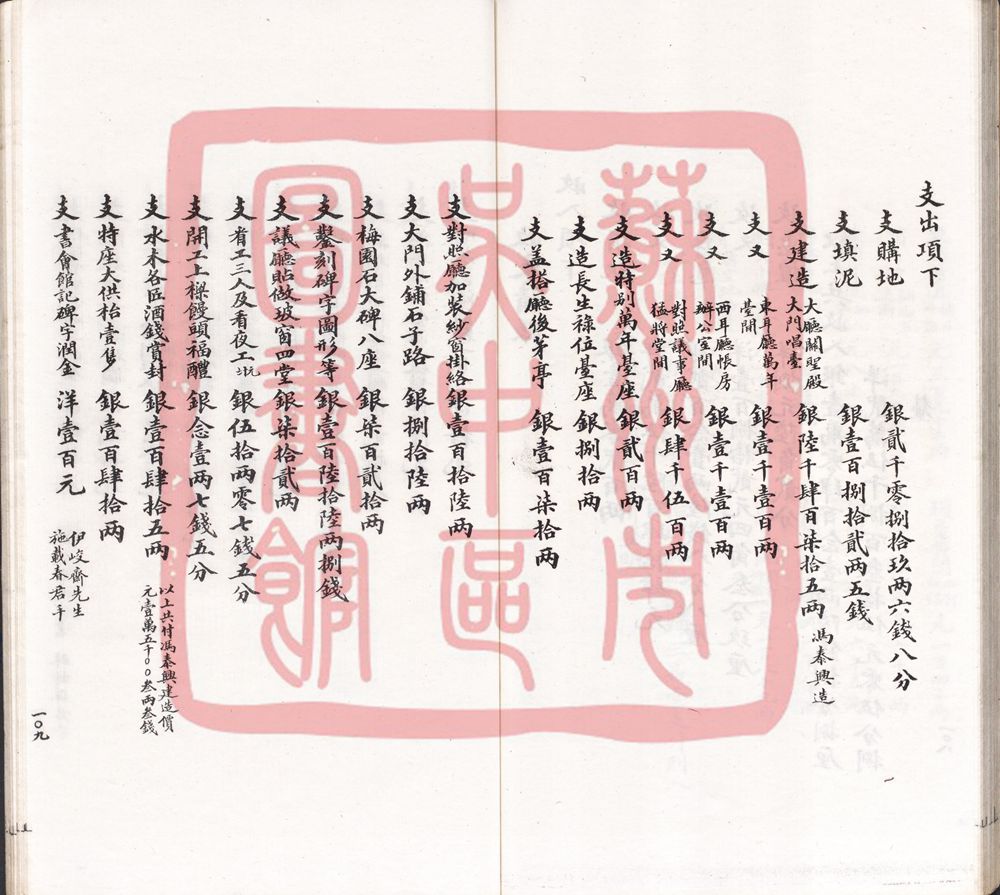 支出項下
支購地 銀貳千零捌拾玖两六錢八分
支填泥 銀壹百捌拾貳两五錢
支建造 大廳關聖殿 大門唱臺 銀陸千肆百柒拾五两 馮泰興造
支又 東耳廳萬年 臺間 銀壹千壹百两
支又 西耳廳帳房 辦公室間 銀壹千壹百两
支又 對照議事廳 猛將堂間 銀肆千伍百两
支造特别萬年臺座 銀貳百两
支造長生祿位臺座 銀捌拾两
支盖搭廳後茅亭 銀壹百柒拾两
支對照廳加装紗窗掛絡 銀壹百拾陸两
支大門外鋪石子路 銀捌拾陸两
支梅園石大碑八座 銀柒百貳拾两
支鑿刻碑字圖形等 銀壹百陸拾陸两捌錢
支議廳貼做玻窗四堂 銀柒拾貳两
支省工三人及看夜工 銀伍拾两零七錢五分
支開工上樑饅頭福醴 銀念壹两七錢五分
支水木各匠酒錢賞封 銀壹百肆拾五两 以上共付馮泰興建造價
元壹萬五千００叁两叁錢
支特座大供枱壹隻 銀壹百肆拾两
支書會館記碑字潤金 洋壹百元 伊峻齋先生
施載春君手
一〇九
蘇州市
吳中區
圖書館